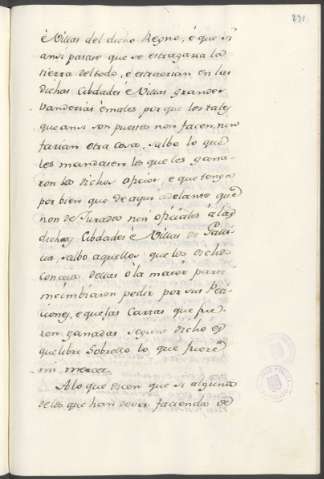 231
é Villas del dicho Regno, é que si
ansi pasase que se estragaria la
tierra del todo, é estarian en las
dichas Cibdades é Villas grandes
vanderias é males por que los tales
que ansi son puestos non facen, nin
farian otra cosa, salbo lo que
les mandasen los que les gana-
ron los dichos oficios, é que tenga
por bien que de aqui adelante que
non dé Jurados nin oficiales á las
dichas Cibdades é Villas de Gali-
cia, salbo aquellos que los dichos
Concejos dellas ó la maior parte
me imbiaron pedir por sus Peti-
ciones, é que las Cartas que fue-
ron ganadas segunt dicho es
que libre Sobrello lo que fuere
mi merced.
A lo que dicen que si algunos
de los que han facienda de